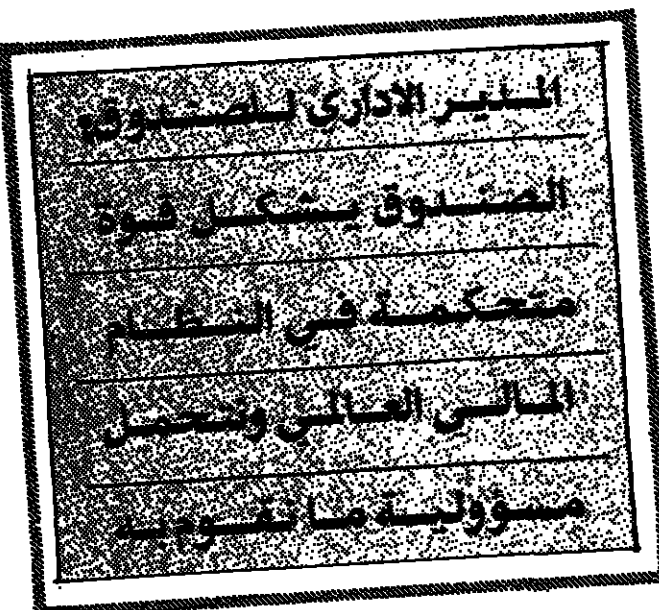 المدير الادارى للصندوق:
الصندوق يشكل قوة
متحكمة فى النظام
المالى العالمى ونتحمل
مسؤولية ما نقوم به